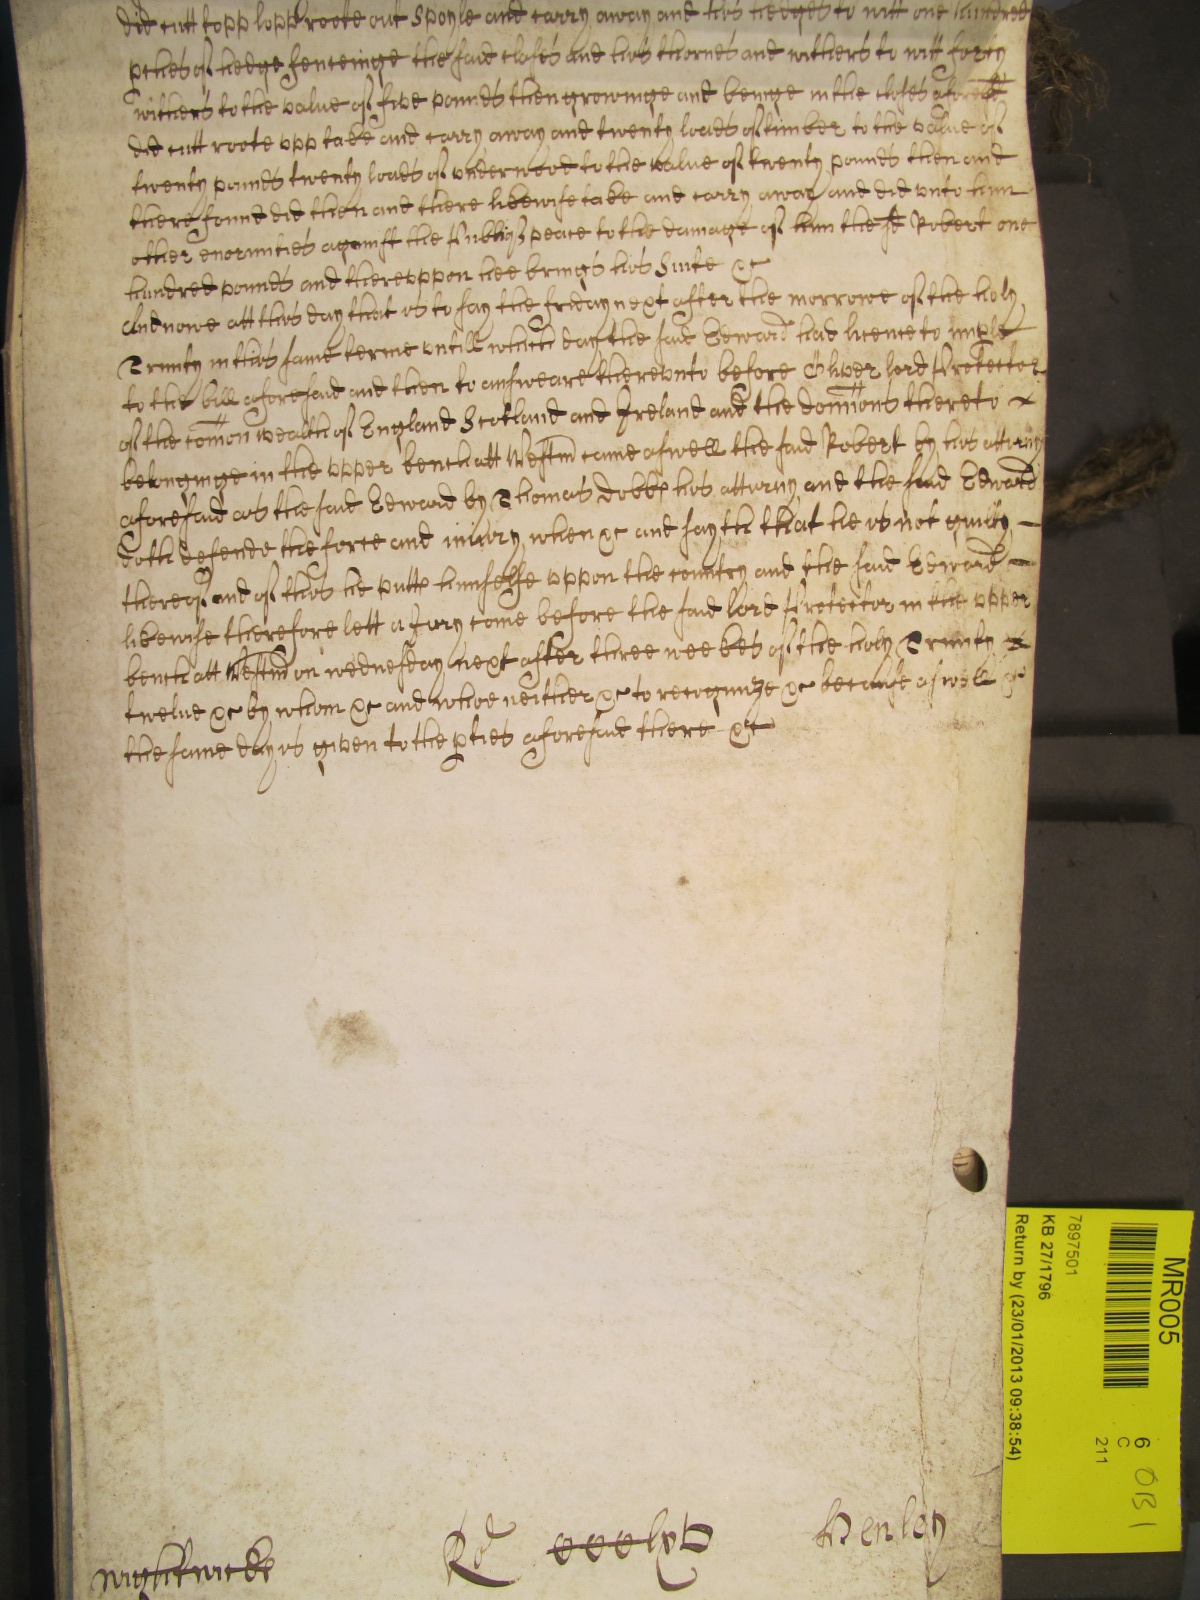 did cutt topp lopp roote out spoyle and carry away and his hedges to witt one hundred
pches of hedge fenceinge the said closes and his thornes and withers to witt forty
withers to the value of five pounds then growinge and beinge in the closes aforesd
did cutt roote vpp take and carry away and twenty loads of timber to the value of
twenty pounds twenty loads of vnderwood to the value of twenty pounds then and
there found did then and there likewise take and carry away and did vnto him
other enormities against the publiq3 peace to the damage of him the sd Robert one
hundred pounds and therevppon hee brings his suite &c
And nowe att this day that is to say the friday next after the morrowe of the holy
Trinity in this same terme vntill which day the said Edward had licence to imple
to the bill aforesaid and then to answeare therevnto before Oliver lord Protector
of the comon wealth of England Scotland and Ireland and the dominions thereto
belonginge in the vpper bench att Westm came aswell the said Robert by his attorny
aforesaid as the said Edward by Thomas Dobbs his atturny and the said Edward
doth defende the force and iniury when &c and sayth that he is not guilty
thereof and of this he putts himselfe vppon the country and the said Edward
likewise therefore lett a Jury come before the said lord Protector in the vpper
bench att Westm on wednesday next after three weekes of the holy Trinity
twelue &c by whom &c and whoe neither &c to recognize &c because aswell &c
the same day is given to the pties aforesaid there &c
wightwicke Rd Henley
MR005
7897501
KB 27/1796
Return by (23/01/2013 09:38:54)
6
C
211
OB1